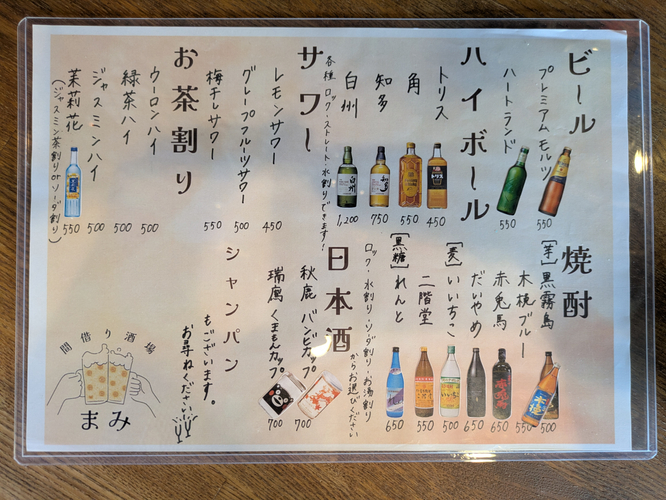 ビール
プレミアムモルツ
550
ハートランド
550
ハイボール
トリス
450
角
550
知多
750
白州
1,200
各種 ロック・ストレート・水割りできます!
サワー
レモンサワー
450
グレープフルーツサワー
500
梅干しサワー
550
お茶割り
ウーロンハイ
500
緑茶ハイ
500
ジャスミンハイ
500
茉莉花
(ジャスミン茶割りorソーダ割り)
550
焼酎
[芋] 黒霧島
500
木挽ブルー
550
赤兎馬
650
だいやめ
650
[麦] いいちこ
500
二階堂
550
[黒糖] れんと
650
ロック・水割り・ソーダ割り・お湯割り
からお選びください
日本酒
秋鹿 バンビカップ
700
瑞鷹 くまもんカップ
700
シャンパン
もございます。
お尋ねください
間借り酒場
まみ